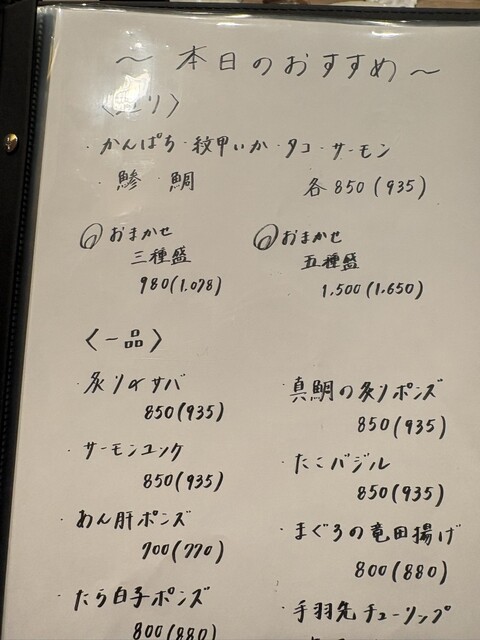 ～ 本日のおすすめ ～
・かんぱち・紋甲いか・タコ・サーモン
・鯵・鯛 各850(935)
おまかせ おまかせ
三種盛 五種盛
980(1,078) 1,500(1,650)
〈一品〉
・炙り〆サバ ・真鯛の炙りポンズ
850(935) 850(935)
・サーモンユッケ ・たこバジル
850(935) 850(935)
・あん肝ポンズ ・まぐろの竜田揚げ
700(770) 800(880)
・たら白子ポンズ ・手羽先チューリップ
800(880)